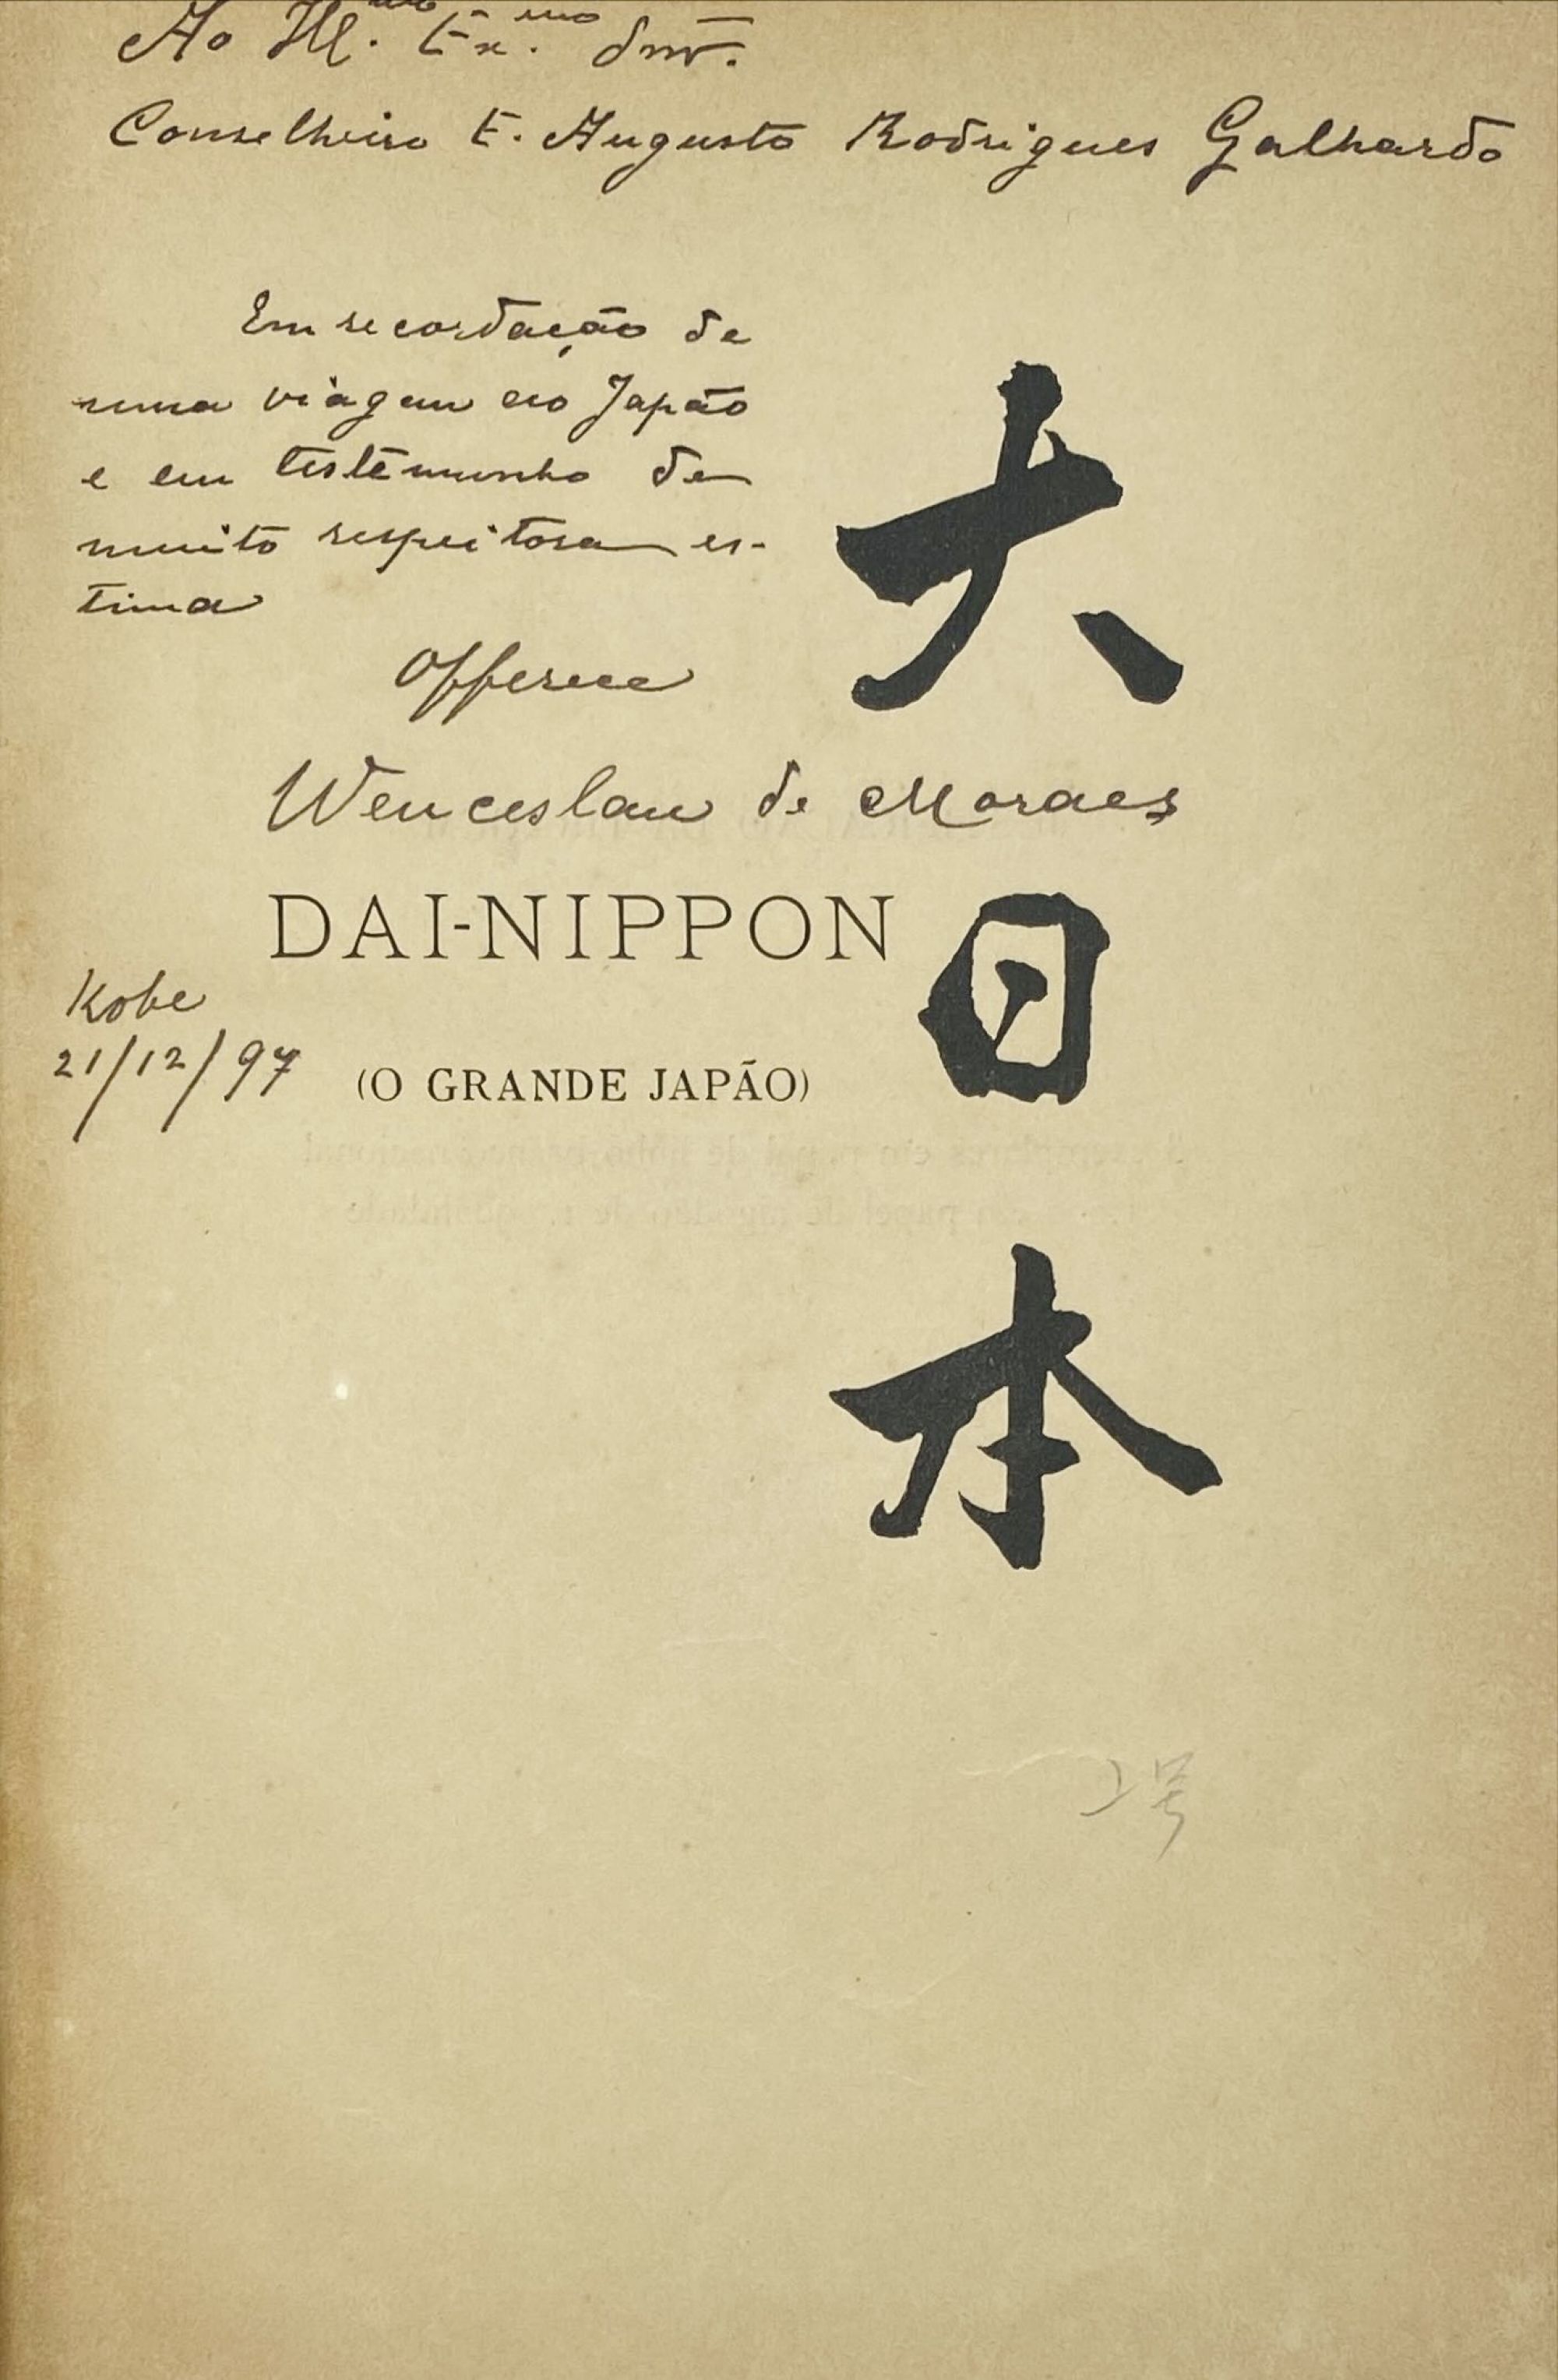 Ao Ill.mo Ex.mo Snr.
Conselheiro E. Augusto Rodrigues Galhardo
Em recordação de
uma viagem ao Japão
e em testemunho de
muito respeitosa es-
tima
Offerece
Wenceslau de Moraes
DAI-NIPPON
Kobe
21/12/97
(O GRANDE JAPÃO)
大日本
号